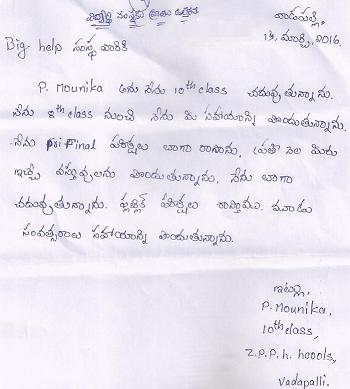 విద్యార్థి సంస్థకు వ్రాయు ఉత్తరం
వాడపల్లి,
13, మార్చి, 2016.
Big help సంస్థ వారికి
P. Mounika అను నేను 10th class చదువుతున్నాను.
నేను 8th class నుంచి నేను మీ సహాయాన్ని పొందుతున్నాను.
నేను pri Final పరీక్షలు బాగా రాశాను, ప్రతి నెల మీరు
ఇచ్చే వస్తువులను పొందుతున్నాను. నేను బాగా
చదువుతున్నాను. పబ్లిక్ పరీక్షలు రాస్తాము. మూడు
సంవత్సరాలు సహాయాన్ని పొందుతున్నాను.
ఇట్లు,
P. Mounika,
10th class,
Z.P.P.h. hools,
Vadapalli.